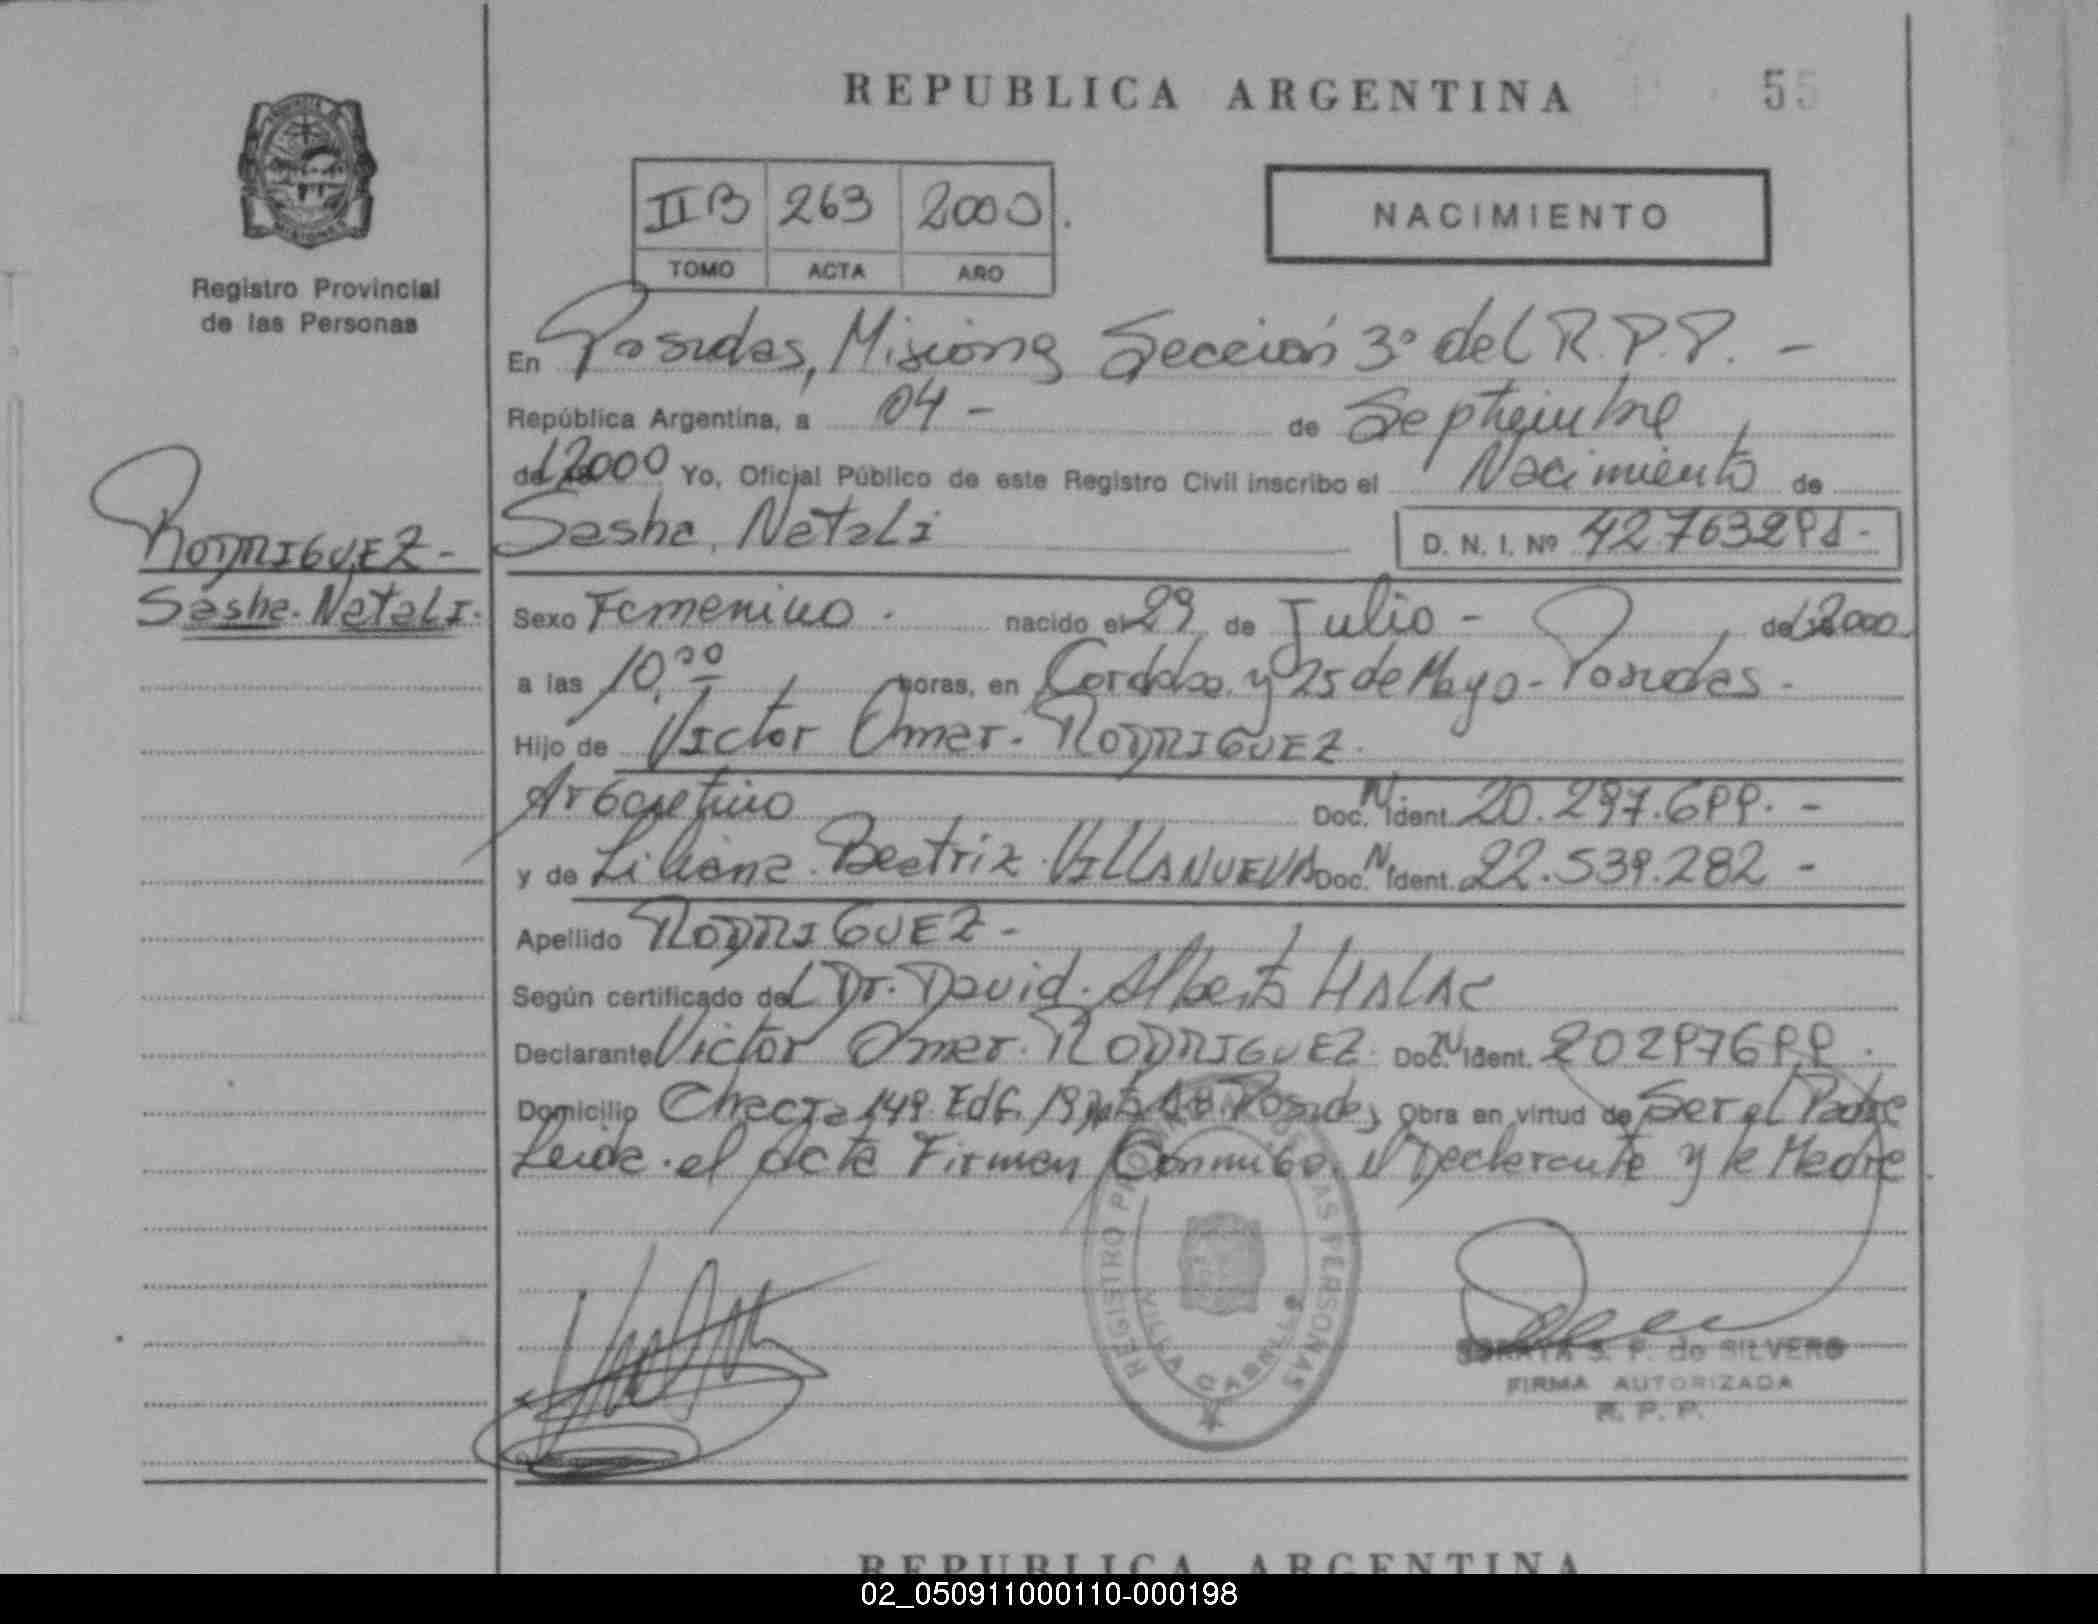 REPUBLICA ARGENTINA 55
II B 263 2000
TOMO ACTA AÑO
NACIMIENTO
Registro Provincial
de las Personas
En Posadas, Misiones Sección 3º del R.P.P. -
República Argentina, a 04 - de Septiembre
del 2000 Yo, Oficial Público de este Registro Civil inscribo el Nacimiento de
Sasha Natali D. N. I. Nº
RODRIGUEZ -
Sasha Natali.
Sexo Femenino. nacido el 29 de Julio - de 2000
a las 10, horas, en Cordoba y 25 de Mayo - Posadas -
Hijo de Victor Omar RODRIGUEZ.
Argentino Doc. N. Ident. 20.297.688. -
y de Liliana Beatriz VILLANUEVA Doc. N. Ident. 22.539.282 -
Apellido RODRIGUEZ -
Según certificado del Dr. David Alberto HALAC
Declarante Victor Omar RODRIGUEZ Doc. N. Ident. 20297688.
Domicilio Chacra 149 Edf. 19 Posadas Obra en virtud de Ser el Padre
Leida el acta Firman Conmigo el Declarante y la Madre
REGISTRO PROVINCIAL DE LAS PERSONAS
VILLA CABELLO
SORAYA S. P. de SILVERO
FIRMA AUTORIZADA
R. P. P.
REPUBLICA ARGENTINA
02_050911000110-000198